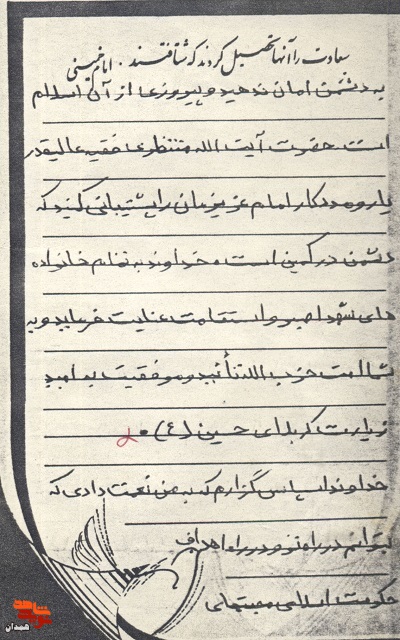 سعادت را آنها تحصیل کردند که شتافتند. امام خمینی
به دشمن امان ندهید و پیروزی از آن اسلام
است حضرت آیت الله منتظری فقیه عالیقدر
یار و مددکار امام عزیزمان را پشتیبانی کنید که
دشمن در کمین است، خداوند به تمام خانواده
های شهدا صبر و استقامت عنایت فرماید و به
شما امت حزب الله تأئید و موفقیت به امید
زیارت کربلای حسین (ع).
خداوندا سپاس گزارم که به من نعمت دادی که
بتوانم در راه تو و در راه اهداف
حکومت اسلامی
همدان